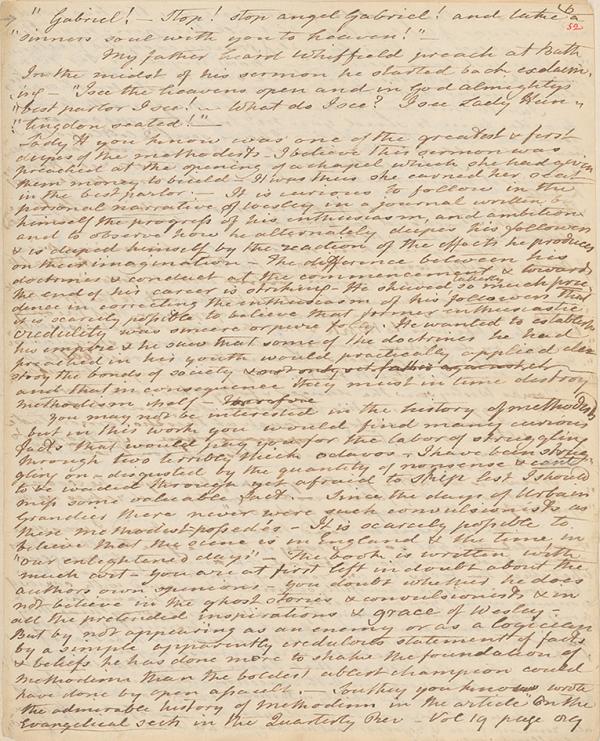 6
52
"Gabriel! — Stop! stop angel Gabriel! and take a
"sinners soul with you to heaven!"
My father heard Whitfield preach at Bath
In the midst of his sermon he started back exclaim-
ing — "I see the heavens open and in God almightys
"best parlor I see! — What do I see? I see Lady Hun-
"tingdon seated!" —
Lady H you know was one of the greatest & first
dupes of the methodists — I believe this sermon was
preached at the opening of a chapel which she had given
them money to build — It was thus she earned her seat
in the best parlor! — It is curious to follow in the
personal narrative of Wesley in a journal written by
himself the progress of his enthusiasm, and ambition
and to observe how he alternately dupes his followers
& is duped himself by the reaction of the effects he produces
on their imagination — The difference between his
doctrines & conduct at the commencement & towards
the end of his career is striking — He shewed so much pru-
dence in directing the enthusiasm of his followers that
it is scarcely possible to believe that former enthusiastic
credulity was sincere or pure. He wanted to establish
his empire & he saw that some of the doctrines he had
preached in his youth would practically applied de-
stroy the bonds of society
and that in consequence they must in time destroy
methodism itself. Therefore
You may not be interested in the history of methodists
— but in this work you would find many curious
facts that would pay you for the labor of struggling
through two terribly thick octavos — I have been strug-
gling on — disgusted by the quantity of nonsense & cant
to be waded through yet afraid to skip lest I should
miss some valuable fact — Since the days of Urbain
Grandier there never were such convulsionists as
these methodist-possedés — It is scarcely possible to
believe that the scene is in England & the time in
"our enlightened days" — The book is written with
much art — you are at first left in doubt about the
authors own opinions — you doubt whether he does
not believe in the ghost stories & convulsionists & in
all the pretended inspirations & grace of Wesley —
But by not appearing as an enemy or as a logician
by a simple apparently credulous statement of facts
& beliefs he has done more to shake the foundation of
methodism than the boldest ablest champion could
have done by open assault. — Southey you know wrote
the admirable history of methodism in the article on the
Evangelical Sects in the Quarterly Rev — Vol 19 page